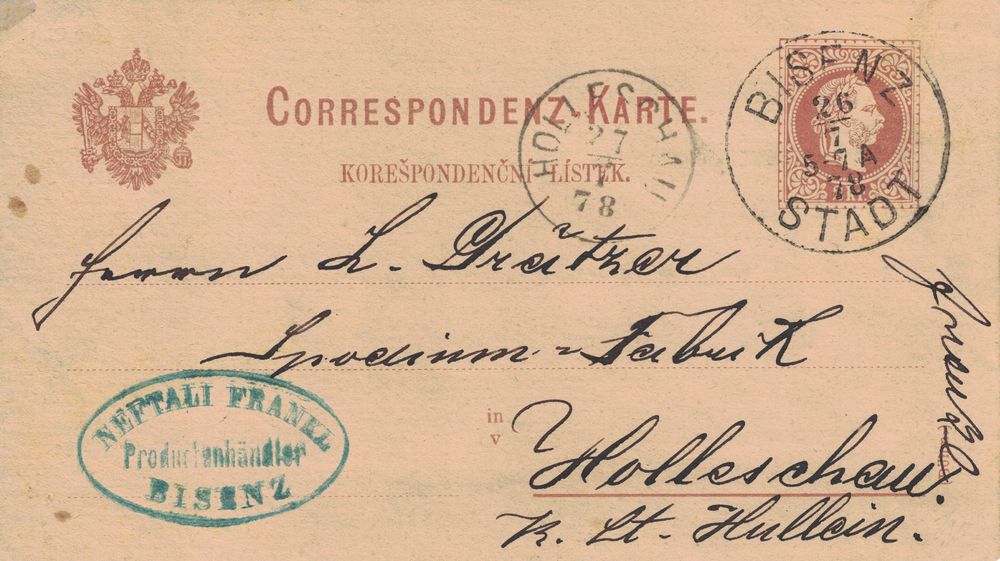 CORRESPONDENZ-KARTE.
KOREŠPONDENČNÍ LÍSTEK.
HOLLESCHAU
27
7
78
BISENZ
26
7
5-7A
78
STADT
Herrn L. Grätzer
Spodium-Fabrik
in
v
Holleschau.
St. Hullein.
NEFTALI FRANKL
Productenhändler
BISENZ